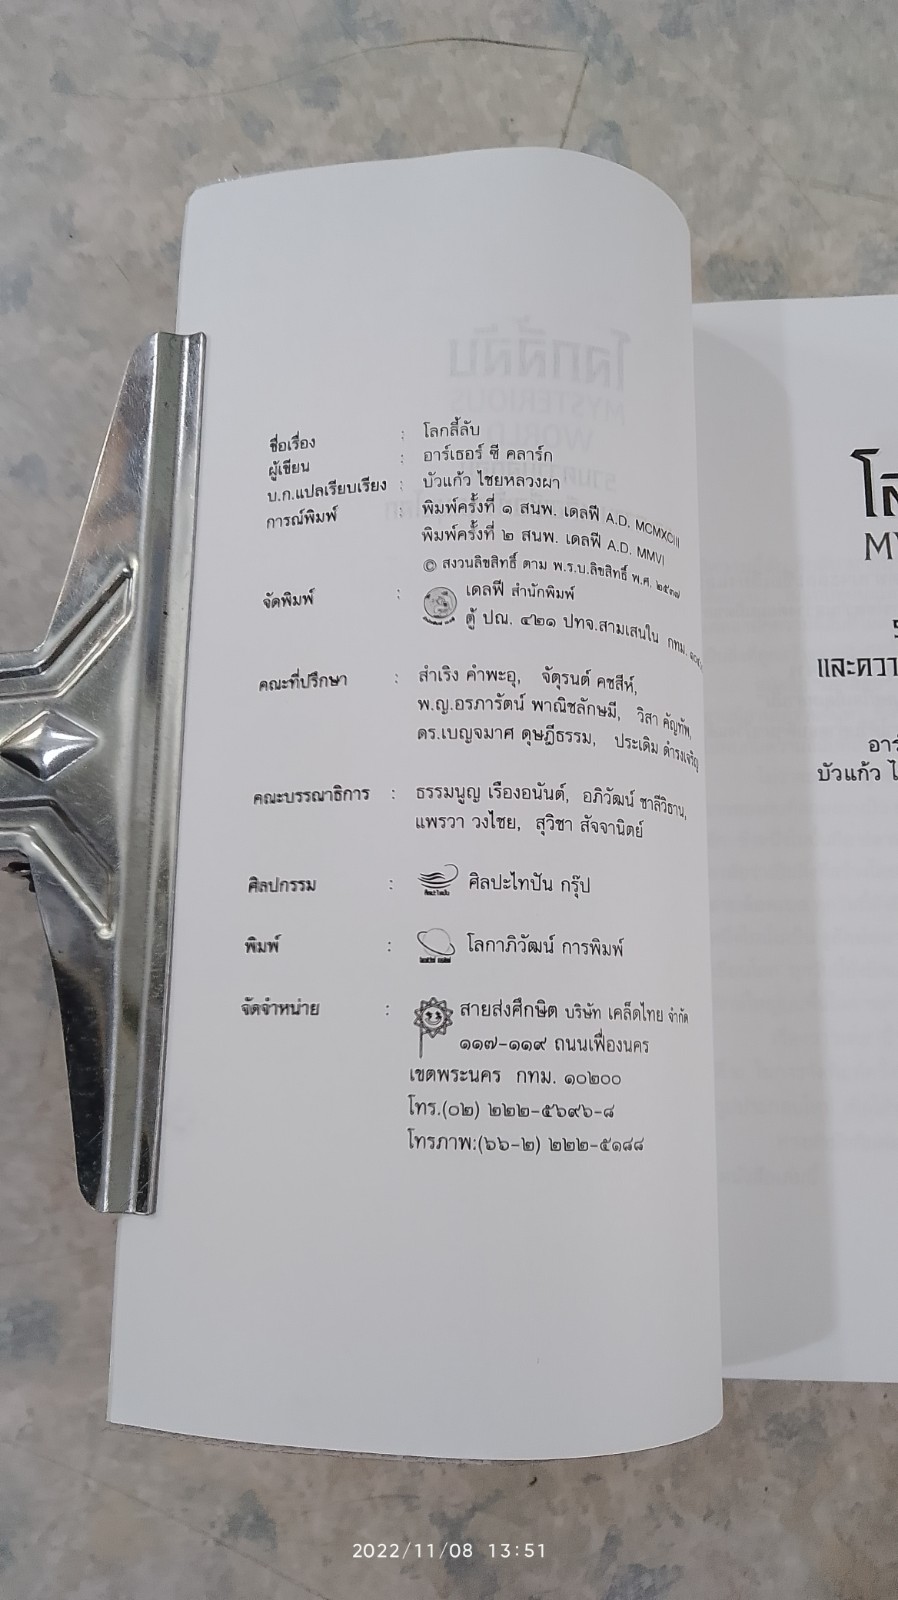 ชื่อเรื่อง : โลกลี้ลับ
ผู้เขียน : อาร์เธอร์ ซี คลาร์ก
บ.ก.แปลเรียบเรียง : บัวแก้ว ไชยหลวงผา
การณ์พิมพ์ : พิมพ์ครั้งที่ ๑ สนพ. เดลฟี A.D. MCMXCIII
พิมพ์ครั้งที่ ๒ สนพ. เดลฟี A.D. MMVI
© สงวนลิขสิทธิ์ ตาม พ.ร.บ.ลิขสิทธิ์ พ.ศ. ๒๕๓๗
จัดพิมพ์ : เดลฟี สำนักพิมพ์
ตู้ ปณ. ๔๒๑ ปทจ.สามเสนใน กทม.
คณะที่ปรึกษา : สำเริง คำพะอุ, จัตุรนต์ คชสีห์,
พ.ญ.อรภารัตน์ พาณิชลักษมี, วิสา คัญทัพ,
ดร.เบญจมาศ ดุษฎีธรรม, ประเดิม ดำรงเจริญ
คณะบรรณาธิการ : ธรรมนูญ เรืองอนันต์, อภิวัฒน์ ชาลีวิธาน,
แพรวา วงไชย, สุวิชา สัจจานิตย์
ศิลปกรรม : ศิลปะไทปัน กรุ๊ป
พิมพ์ : โลกาภิวัฒน์ การพิมพ์
จัดจำหน่าย : สายส่งศึกษิต บริษัท เคล็ดไทย จำกัด
๑๑๗-๑๑๙ ถนนเฟื่องนคร
เขตพระนคร กทม. ๑๐๒๐๐
โทร.(๐๒) ๒๒๒-๕๖๙๖-๘
โทรภาพ:(๖๖-๒) ๒๒๒-๕๑๘๘
MY
และความ
อาร์
บัวแก้ว ไ
2022/11/08 13:51